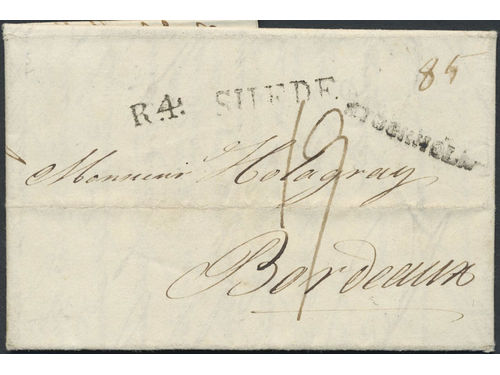 85
R.4. SUEDE
STOCKHOLM
19
Monsieur Holagray
Bordeaux